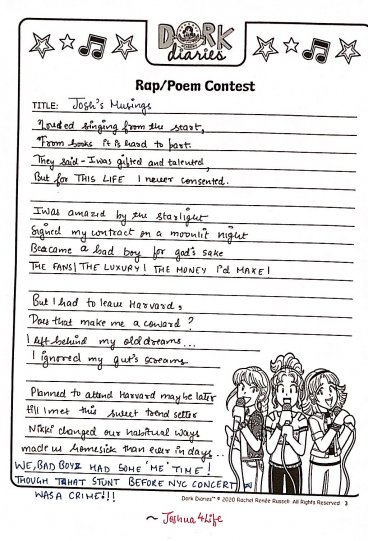 DORK
diaries
Rap/Poem Contest
TITLE: Josh's Musings
Loved singing from the start,
From books it is hard to part.
They said - I was gifted and talented,
But for THIS LIFE I never consented.
I was amazed by the starlight
Signed my contract on a moonlit night
Beacame a bad boy for god's sake
THE FANS! THE LUXURY! THE MONEY I'd MAKE!
But I had to leave Harvard,
Does that make me a coward?
I left behind my old dreams...
I ignored my gut's screams.
Planned to attend Harvard maybe later
till I met this sweet trend setter
Nikki changed our habitual ways
made us homesick than ever in days..
WE, BAD BOYZ HAD SOME 'ME' TIME!
THOUGH THAT STUNT BEFORE NYC CONCERT
WAS A CRIME!!!
Dork Diaries™ © 2020 Rachel Renée Russell. All Rights Reserved 3
~ Joshua4Life